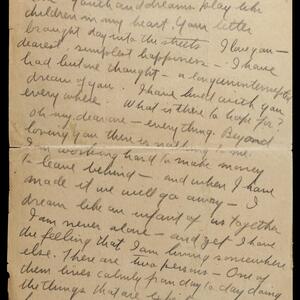 Youth and dreams play like
children in my heart. Your letter
brought day into the streets I love you —
dearest, simplest happiness — I have
had but one thought — a long uninterrupted
dream of you. I have lived with you
everywhere. What is there to hope for?
oh my dear one — everything. Beyond
loving you there is nothing to me.
I'm working hard to make money
to leave behind — and when I have
made it we will go away — I
dream like an infant of us together
I am never alone — and yet I have
the feeling that I am living somewhere
else. There are two persons — One of
them lives calmly from day to day doing
the things that are